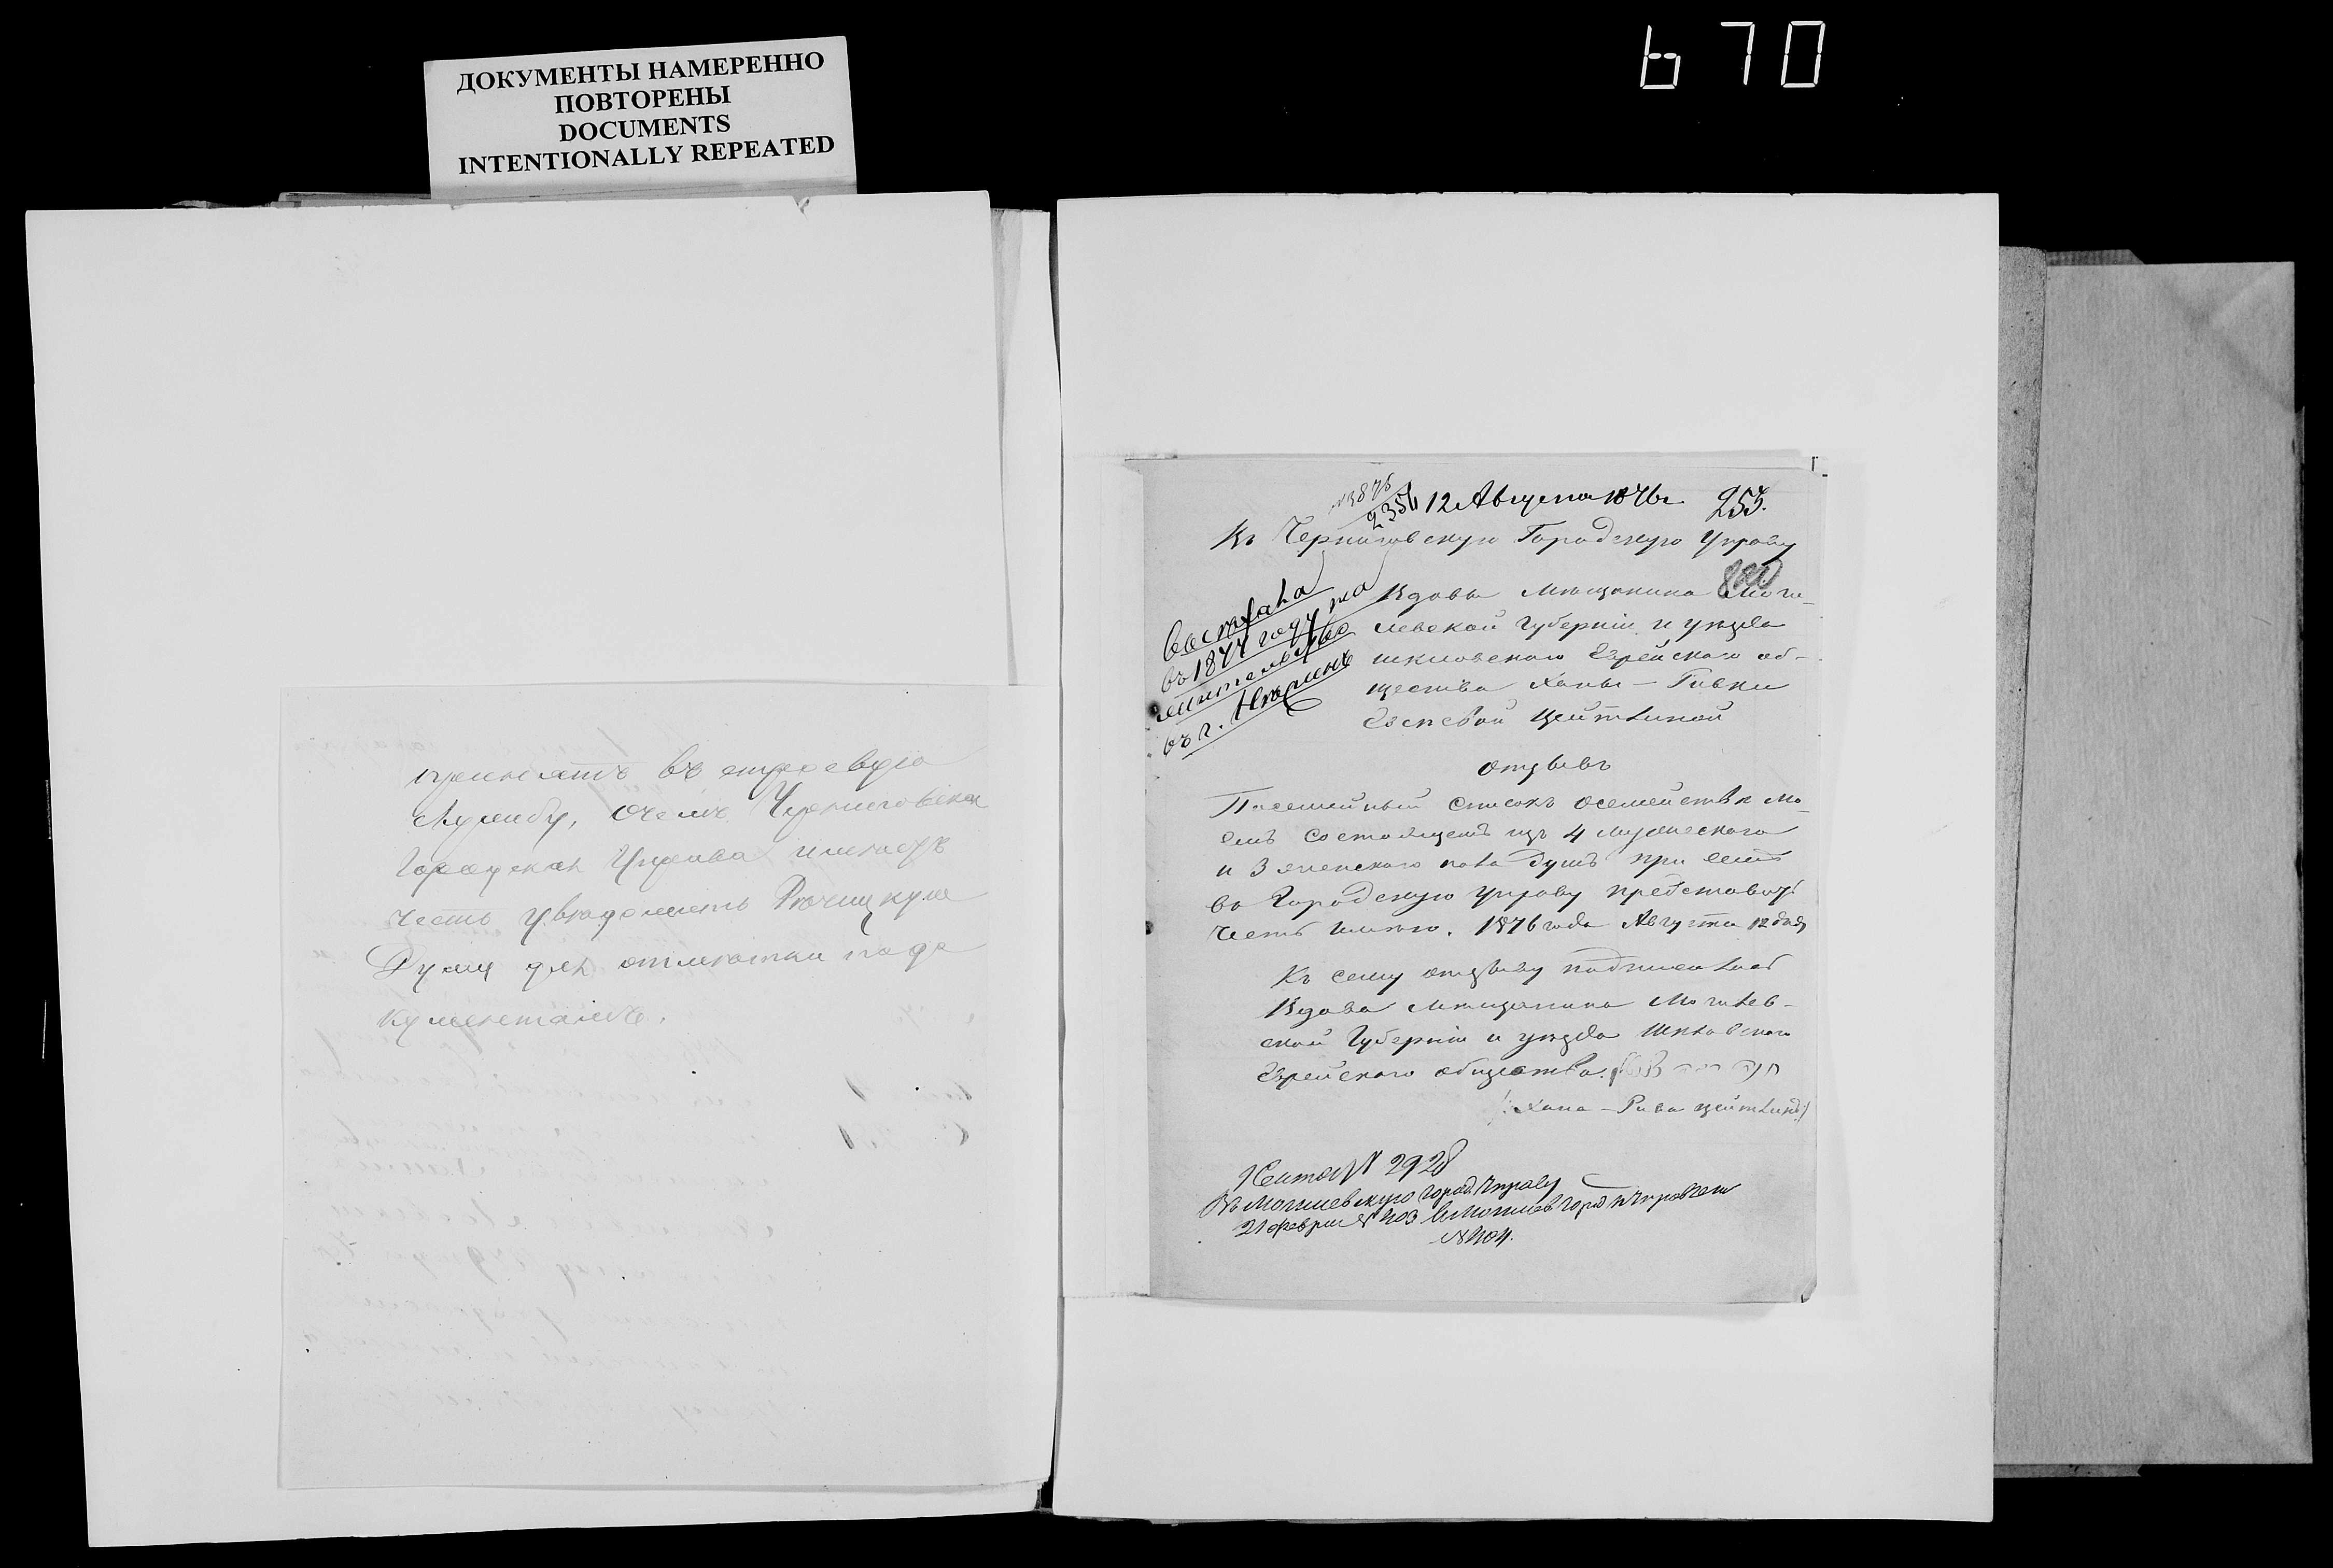 ДОКУМЕНТЫ НАМЕРЕННО
ПОВТОРЕНЫ
DOCUMENTS
INTENTIONALLY REPEATED
670
принятъ въ строевую
службу, о чемъ Черниговская
Городская Управа имѣетъ
честь увѣдомить Рѣчицкую
Думу для отмѣтки по до
кументамъ.
2354 12 Августа 1876 г. 253.
Въ Черниговскую Городскую Управу
въ 1877 году на
жительство
въ г. Нѣжинѣ
Вдовы Мѣщанина Моги-
левской Губерніи и уѣзда
шкловскаго Еврейскаго об-
щества Ханы-Ривки
Цейтлиной
отзывъ
Посемейный списокъ о семействѣ мо-
емъ состоящемъ изъ 4 мужескаго
и 3 женскаго пола душъ при семъ
въ Городскую управу представить
честь имѣю. 1876 года Августа 12 дня
Къ сему отзыву подписалась
Вдова мѣщанина Могилев-
ской Губерніи и уѣзда Шкловскаго
Еврейскаго общества
חנה
(: Хана-Рива Цейтлинъ :)
№ 2928
Въ Могилевскую Город. Управу
21 Февраля № 403
№ 404.